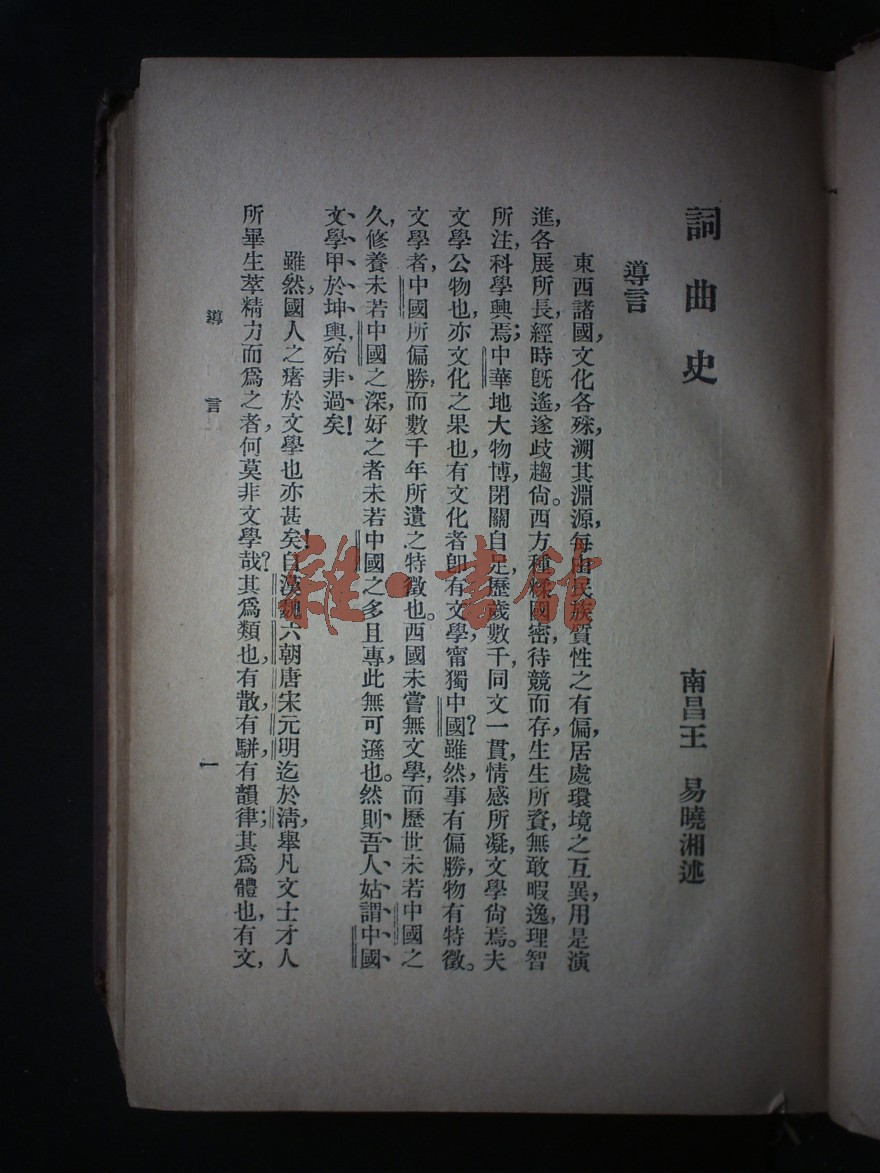 詞曲史
南昌王 易曉湘述
導言
東西諸國，文化各殊，溯其淵源，每由民族質性之有偏，居處環境之互異，用是演
進，各展所長，經時旣遙，遂歧趨尙。西方種糅國密，待競而存，生生所資，無敢暇逸，理智
所注，科學興焉；中華地大物博，閉關自足，歷歲數千，同文一貫，情感所凝，文學尙焉。夫
文學公物也，亦文化之果也，有文化者卽有文學，甯獨中國？雖然，事有偏勝，物有特徵。
文學者，中國所偏勝，而數千年所遺之特徵也。西國未嘗無文學，而歷世未若中國之
久，修養未若中國之深，好之者未若中國之多且專，此無可遜也。然則、吾、人、姑、謂、中、國、
文、學、甲、於、坤、輿、殆、非、過、矣！
雖然，國人之瘏於文學也亦甚矣！自漢魏六朝唐宋元明迄於淸，舉凡文士才人
所畢生萃精力而爲之者，何莫非文學哉？其爲類也，有散，有駢，有韻律；其爲體也，有文，
導言
一
雜·書館